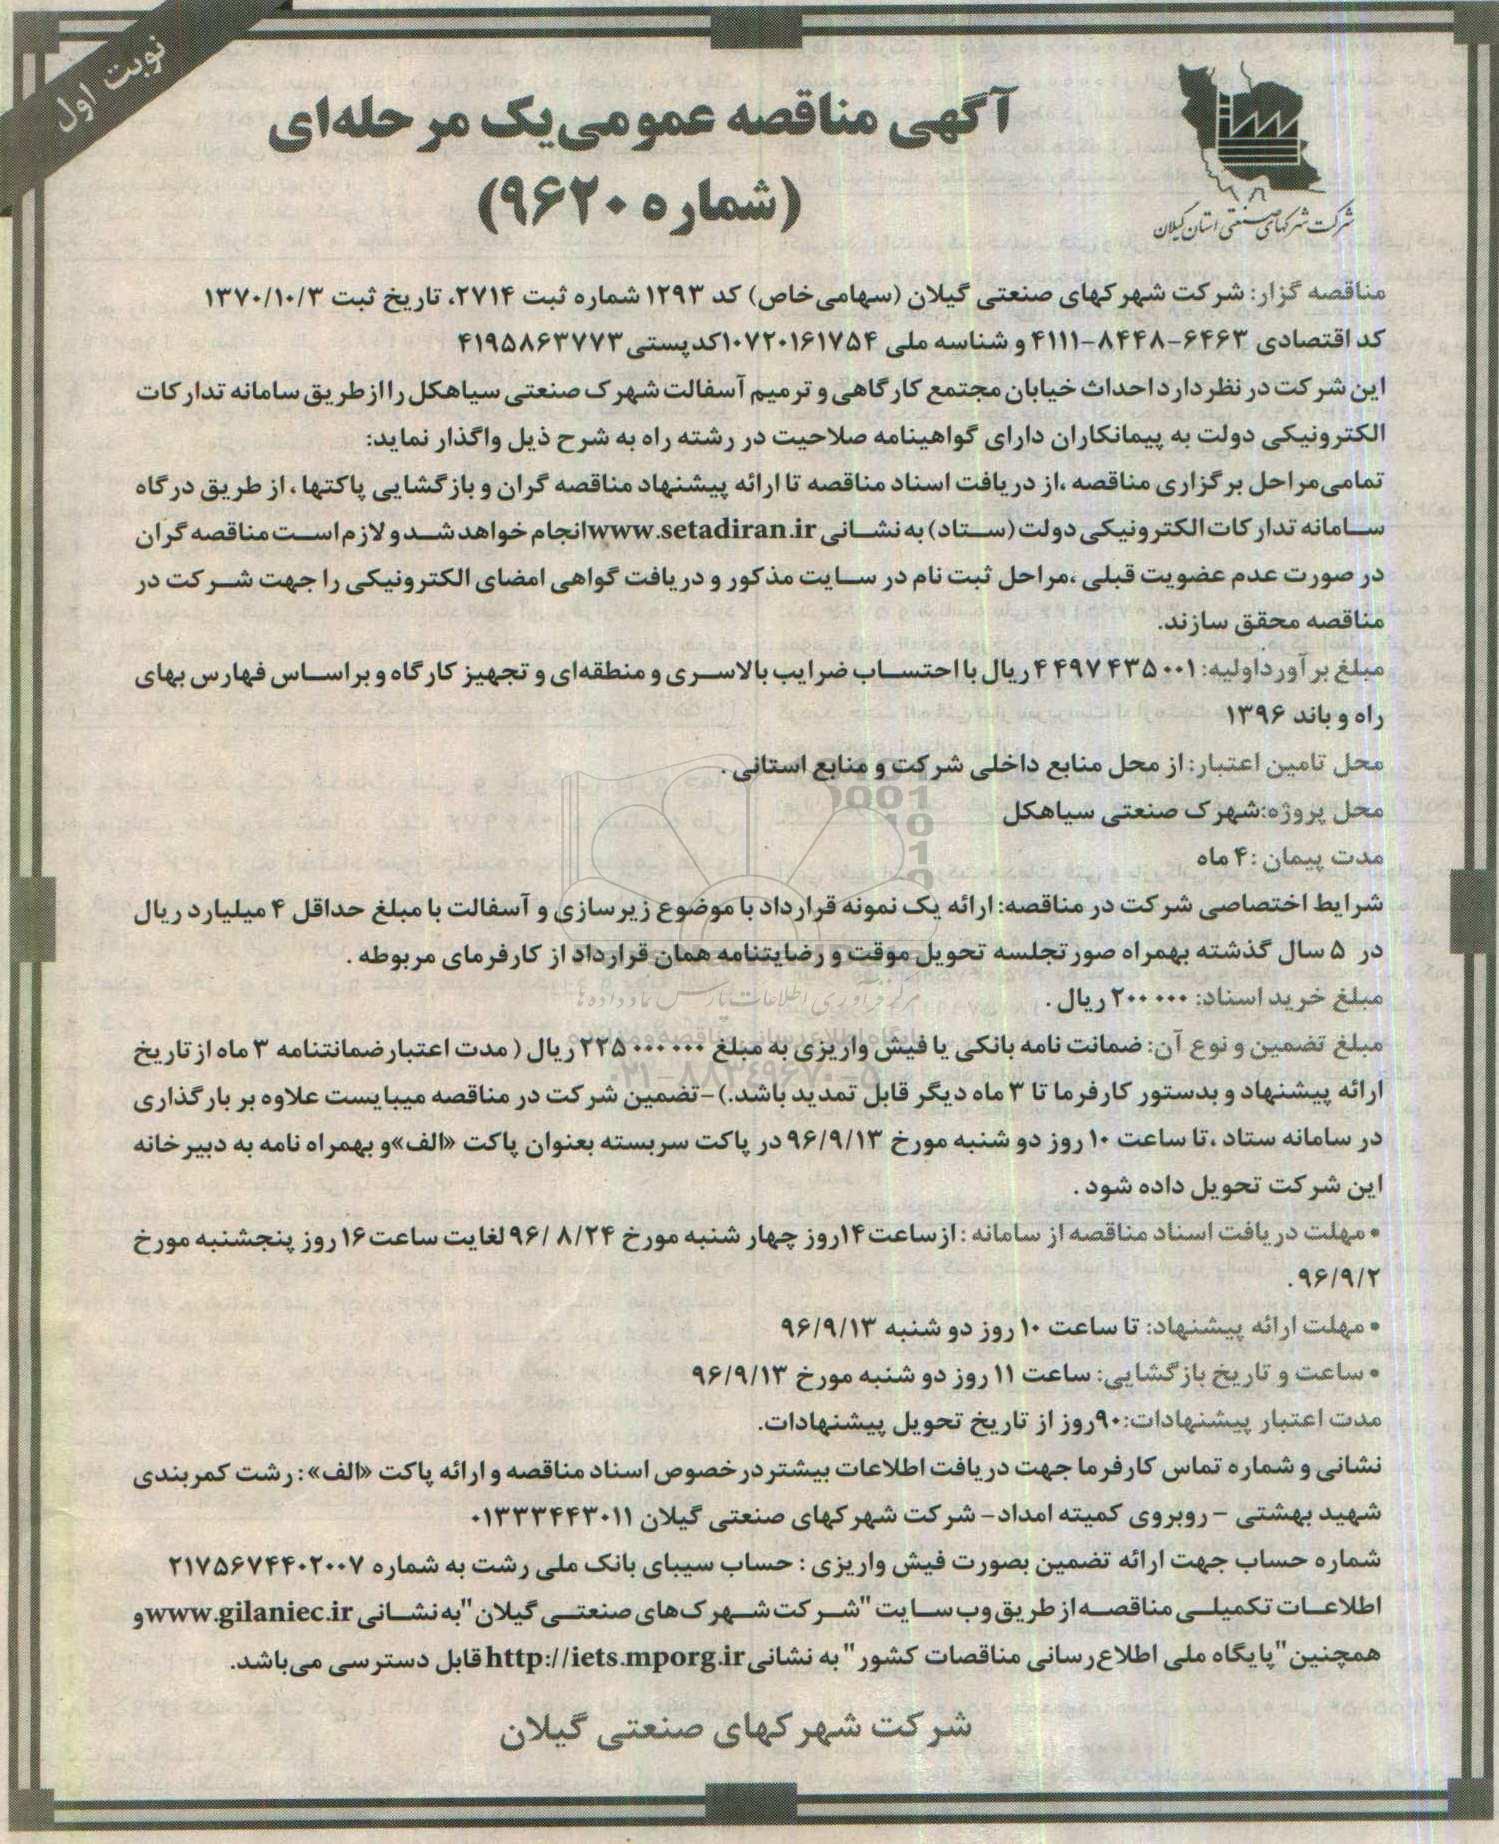 نوبت اول
آگهی مناقصه عمومی یک مرحله‌ای
(شماره ۹۶۲۰)
شرکت شهرکهای صنعتی استان گیلان
مناقصه گزار: شرکت شهرکهای صنعتی گیلان (سهامی خاص) کد ۱۲۹۳ شماره ثبت ۲۷۱۴، تاریخ ثبت ۱۳۷۰/۱۰/۳
کد اقتصادی ۶۴۶۳-۸۴۴۸-۴۱۱۱ و شناسه ملی ۱۰۷۲۰۱۶۱۷۵۴ کدپستی ۴۱۹۵۸۶۳۷۷۳
این شرکت در نظر دارد احداث خیابان مجتمع کارگاهی و ترمیم آسفالت شهرک صنعتی سیاهکل را از طریق سامانه تدارکات
الکترونیکی دولت به پیمانکاران دارای گواهینامه صلاحیت در رشته راه به شرح ذیل واگذار نماید:
تمامی مراحل برگزاری مناقصه ،از دریافت اسناد مناقصه تا ارائه پیشنهاد مناقصه گران و بازگشایی پاکتها ، از طریق درگاه
سامانه تدارکات الکترونیکی دولت (ستاد) به نشانی www.setadiran.ir انجام خواهد شد و لازم است مناقصه گران
در صورت عدم عضویت قبلی ،مراحل ثبت نام در سایت مذکور و دریافت گواهی امضای الکترونیکی را جهت شرکت در
مناقصه محقق سازند.
مبلغ برآورد اولیه: ۴ ۴۹۷ ۴۳۵ ۰۰۱ ریال با احتساب ضرایب بالاسری و منطقه‌ای و تجهیز کارگاه و براساس فهارس بهای
راه و باند ۱۳۹۶
محل تامین اعتبار: از محل منابع داخلی شرکت و منابع استانی .
محل پروژه:شهرک صنعتی سیاهکل
مدت پیمان :۴ ماه
شرایط اختصاصی شرکت در مناقصه: ارائه یک نمونه قرارداد با موضوع زیرسازی و آسفالت با مبلغ حداقل ۴ میلیارد ریال
در ۵ سال گذشته بهمراه صورتجلسه تحویل موقت و رضایتنامه همان قرارداد از کارفرمای مربوطه .
مرکز فرآوری اطلاعات پارس نماد داده ها
مبلغ خرید اسناد: ۲۰۰ ۰۰۰ ریال .
مبلغ تضمین و نوع آن: ضمانت نامه بانکی یا فیش واریزی به مبلغ ۲۲۵ ۰۰۰ ۰۰۰ ریال ( مدت اعتبار ضمانتنامه ۳ ماه از تاریخ
۰۲۱-۸۸۳۴۹۶۷۰-۵
ارائه پیشنهاد و بدستور کارفرما تا ۳ ماه دیگر قابل تمدید باشد.)-تضمین شرکت در مناقصه میبایست علاوه بر بارگذاری
در سامانه ستاد ،تا ساعت ۱۰ روز دو شنبه مورخ ۹۶/۹/۱۳ در پاکت سربسته بعنوان پاکت «الف»و بهمراه نامه به دبیرخانه
این شرکت تحویل داده شود .
• مهلت دریافت اسناد مناقصه از سامانه : از ساعت ۱۴روز چهار شنبه مورخ ۹۶/ ۸/۲۴ لغایت ساعت ۱۶ روز پنجشنبه مورخ
۹۶/۹/۲.
• مهلت ارائه پیشنهاد: تا ساعت ۱۰ روز دو شنبه ۹۶/۹/۱۳
• ساعت و تاریخ بازگشایی: ساعت ۱۱ روز دو شنبه مورخ ۹۶/۹/۱۳
مدت اعتبار پیشنهادات:۹۰روز از تاریخ تحویل پیشنهادات.
نشانی و شماره تماس کارفرما جهت دریافت اطلاعات بیشتر درخصوص اسناد مناقصه و ارائه پاکت «الف»: رشت کمربندی
شهید بهشتی - روبروی کمیته امداد- شرکت شهرکهای صنعتی گیلان ۰۱۳۳۳۴۴۳۰۱۱
شماره حساب جهت ارائه تضمین بصورت فیش واریزی : حساب سیبای بانک ملی رشت به شماره ۲۱۷۵۶۷۴۴۰۲۰۰۷
اطلاعات تکمیلی مناقصه از طریق وب سایت "شرکت شهرک‌های صنعتی گیلان"به نشانی www.gilaniec.ir و
همچنین "پایگاه ملی اطلاع رسانی مناقصات کشور" به نشانی http://iets.mporg.ir قابل دسترسی می‌باشد.
شرکت شهرکهای صنعتی گیلان